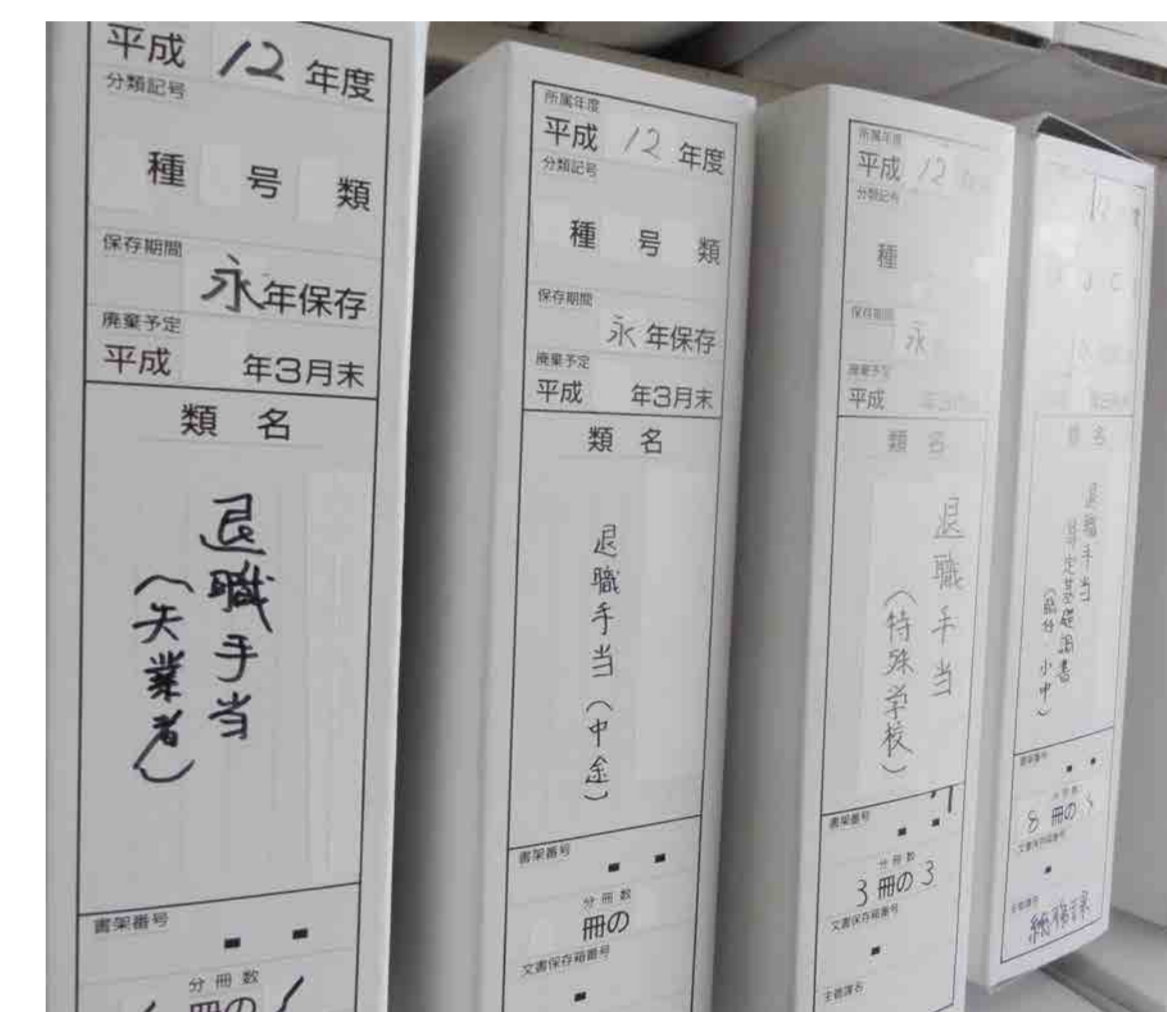 平成 12 年度
分類記号
種 号 類
保存期間
永年保存
廃棄予定
平成 年3月末
類 名
退職手当
(失業者)
書架番号
- -
分 冊 数
冊の
所属年度
平成 12 年度
分類記号
種 号 類
保存期間
永年保存
廃棄予定
平成 年3月末
類 名
退職手当(中途)
書架番号
- -
分 冊 数
冊の
文書保存箱番号
-
所属年度
平成 12
分類記号
種
保存期間
永
廃棄予定
平成 年3月末
類 名
退職手当
(特殊学校)
書架番号
- -
分 冊 数
3 冊の 3
文書保存箱番号
-
主管課名
12
年3月末
類 名
退職手当
算定基礎調書
小中)
書架番号
- -
分 冊 数
8 冊の
文書保存箱番号
-
主管課名